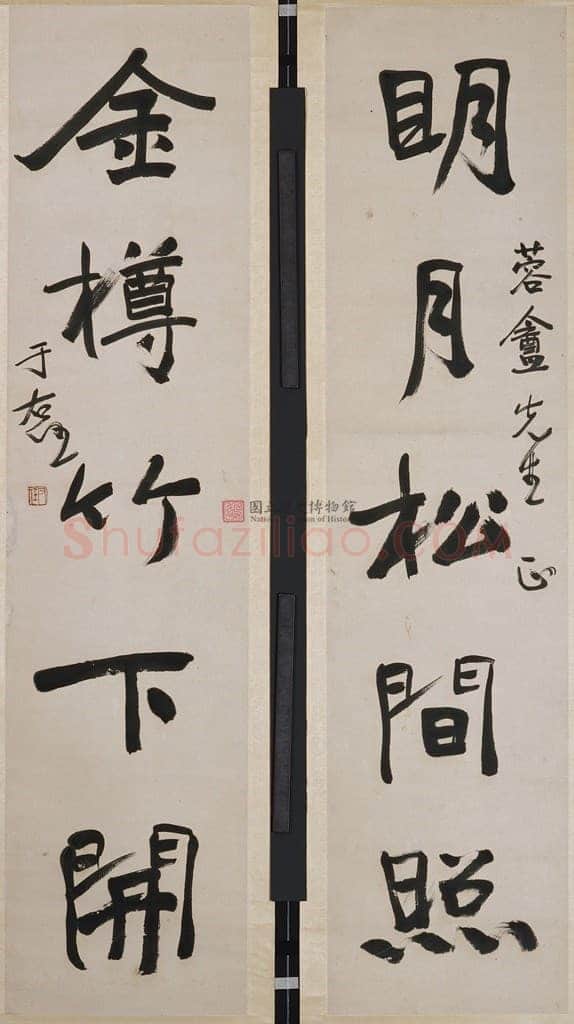 明月松間照
蓉盦先生正
金樽竹下開
于右任
國立歷史博物館
National Museum of History
Shufaziliao.COM